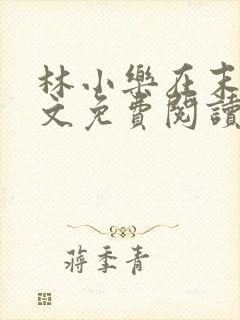 林小樂在末
文免費閱讀
蔣季青